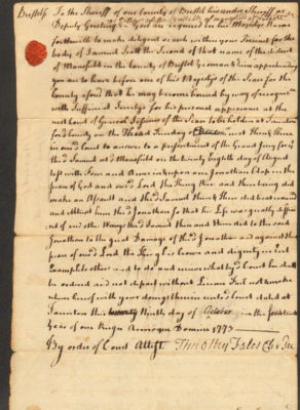 Bristol ss To the Sheriff of our County of Bristol his under Sheriff or
Deputy Greeting you are required in his Majestys Name
forthwith to make diligent search within your Precinct for the
body of Samuel Scott the Second of that name of the district
of Mansfield in the County of Bristol Yeoman & him apprehending
you are to have before one of his Majestys of the Peace for the
County aforesd that he may become bound by way of recogni
with Sufficient Sureties for his personal appearance at the
next Court of General Sessions of the Peace to be holden at Taunton
for sd County on the Third Tuesday of next then & there
in our sd Court to answer to a presentment of the Grand Jury for
the sd Samuel at sd Mansfield on the twenty eighth day of August
last with Force and Arms in & upon one Jonathan Clap in the
peace of God and our sd Lord the King then and there being did
make an Assault and the sd Samuel then & there did beat wound
and him the sd Jonathan so that his Life was greatly
of and other Wrongs the sd Samuel then and there did to the said
Jonathan to the great Damage of the sd Jonathan and against the
peace of our sd Lord the King his Crown and dignity
Example to others and to do and receive what by sd Court shall
be ordered and not depart without Licence Fail not & make
return hereof with your doings therein unto sd Court dated at
Taunton this Ninth day of October in the
Year of our Reign Annoque Domini 1773
By order of Court Attest Timothy Fales